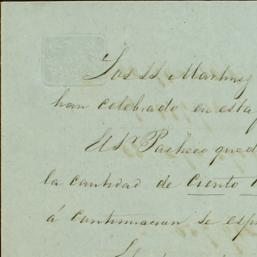 Los SS Martinez
han celebrado en esta
El Sr Pacheco qued
la cantidad de Ciento
á continuacion se esp